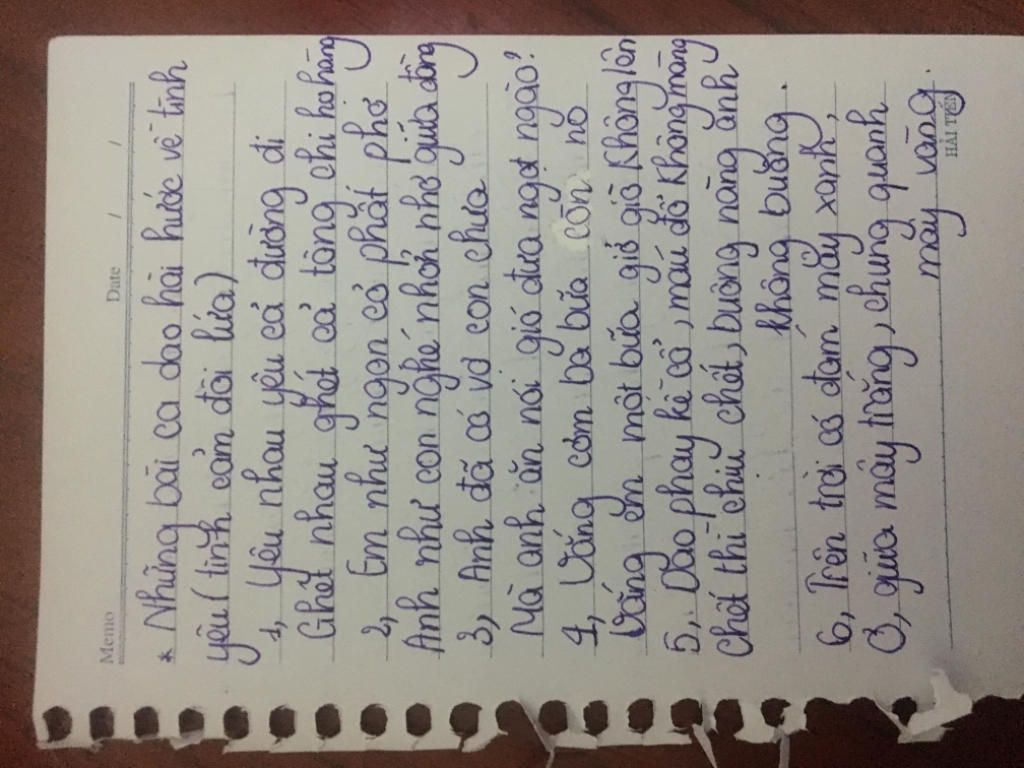 Memo Date / /
* Những bài ca dao hài hước về tình
yêu (tình cảm đôi lứa)
1, Yêu nhau yêu cả đường đi
Ghét nhau ghét cả tông chi họ hàng
2, Em như ngọn cỏ phất phơ
Anh như con nghé nhởn nhơ giữa đồng
3, Anh đã có vợ con chưa
Mà anh ăn nói gió đưa ngọt ngào?
4, Vắng cơm ba bữa còn no
Vắng em một bữa giở giò không lên
5, Dao phay kề cổ, máu đổ không màng
Chết thì chịu chết, buông nàng anh
không buông.
6, Trên trời có đám mây xanh,
Ở giữa mây trắng, chung quanh
mây vàng.
HẢI TIẾN